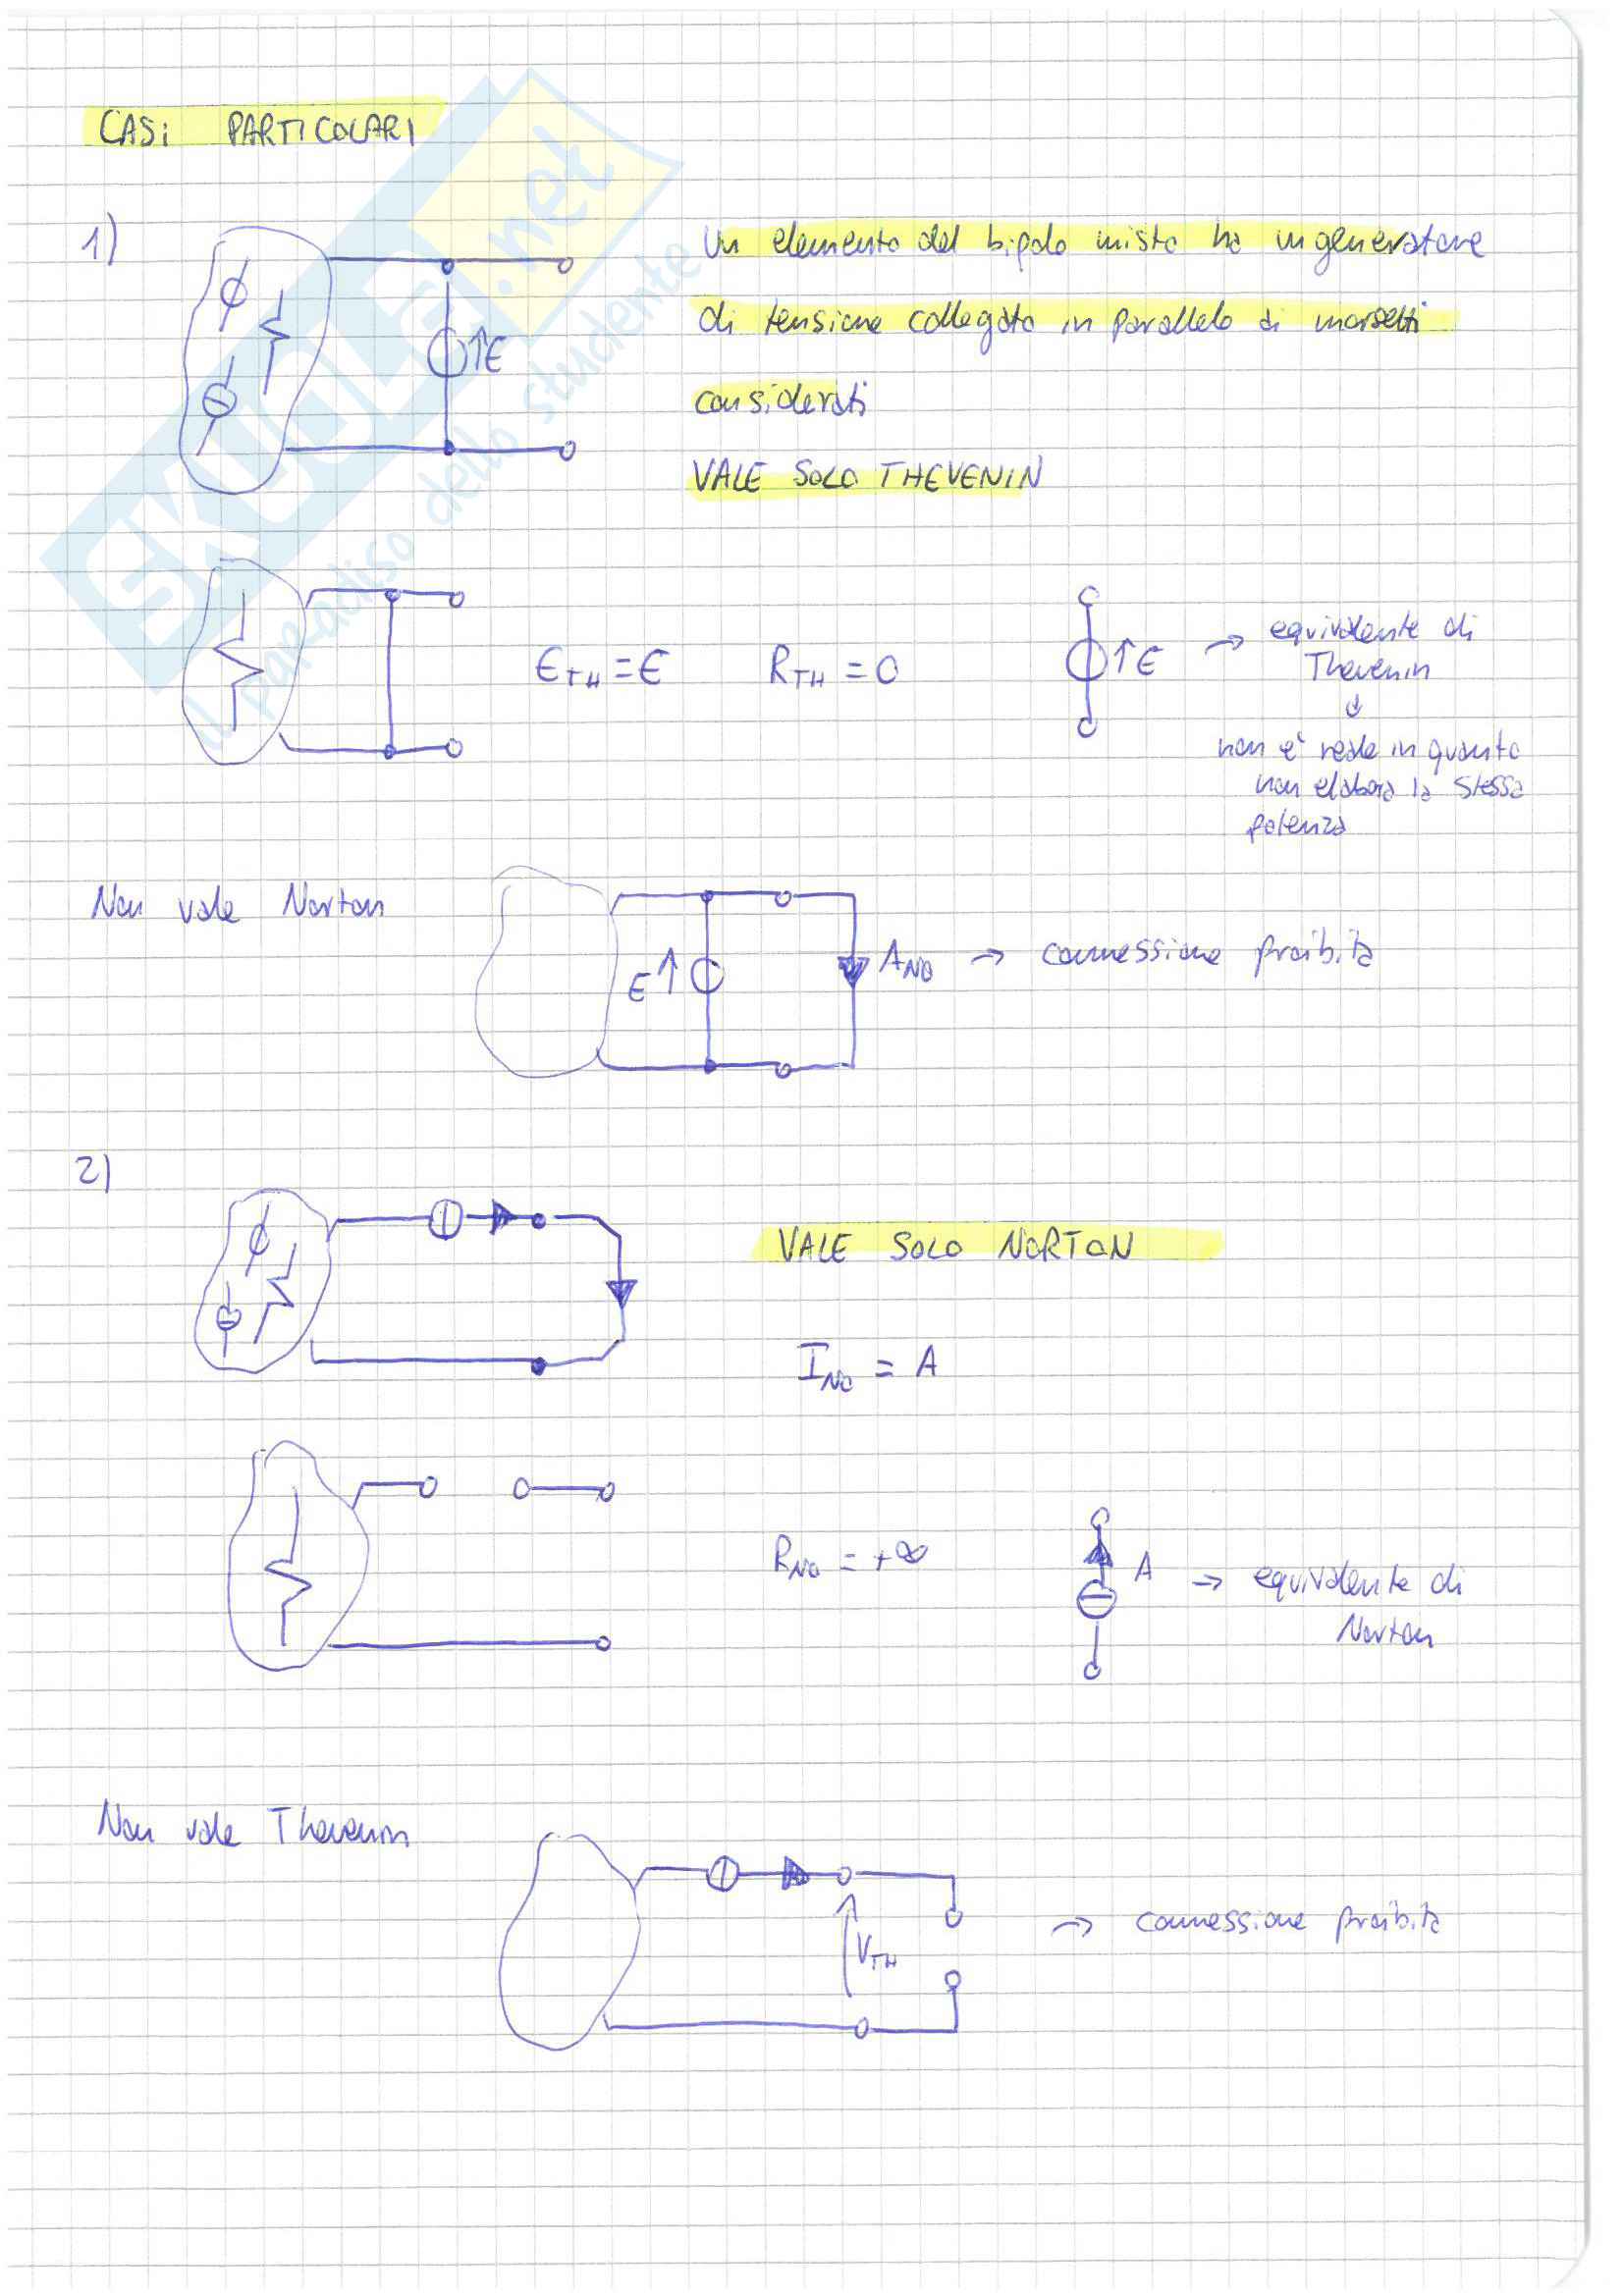 CASi PARTICOLARI
1)
Un elemento del bipolo misto ha un generatore
di tensione collegato in parallelo ai morsetti
considerati
VALE SOLO THEVENIN
↑E
E_TH = E R_TH = 0
↑E → equivalente di
Thevenin
↓
non e' reale in quanto
non elabora la stessa
potenza
Non vale Norton
E↑
A_NO → connessione proibita
2)
VALE SOLO NORTON
I_NO = A
R_NO = +∞
A → equivalente di
Norton
Non vale Thevenin
V_TH
→ connessione proibita
SKUOLA.net
il paradiso dello studente